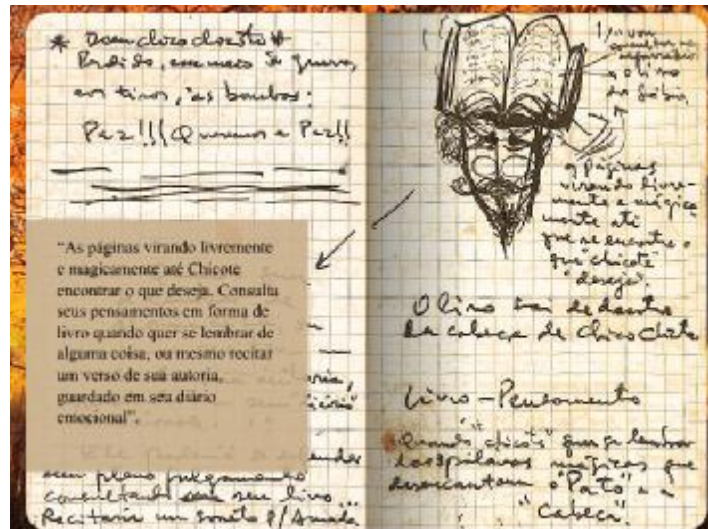 Perdido, em meio à guerra,
aos tiros, às bombas:
Paz!!! Queremos a Paz!!
"As páginas virando livremente
e magicamente até Chicote
encontrar o que deseja. Consulta
seus pensamentos em forma de
livro quando quer se lembrar de
alguma coisa, ou mesmo recitar
um verso de sua autoria,
guardado em seu diário
emocional".
em pleno julgamento
consultando seu livro...
Recitaria um soneto p/ Amada
o livro
as páginas
virando livre-
mente e magica
mente até
que se encontre o
que "chicote"
"deseja".
O livro sai de dentro
da cabeça de Chicochote
Livro - Pensamento
Quando "chicote" quer se lembrar
das palavras mágicas que
desencantam o "Pato" e a
"Cabeça"